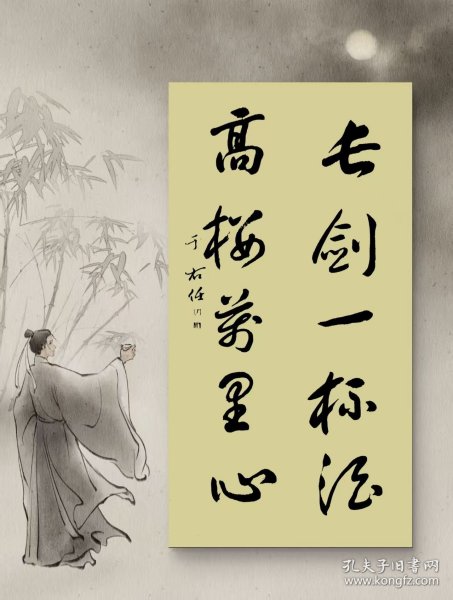 长剑一杯酒
高楼万里心
于右任
孔夫子旧书网
www.kongfz.com